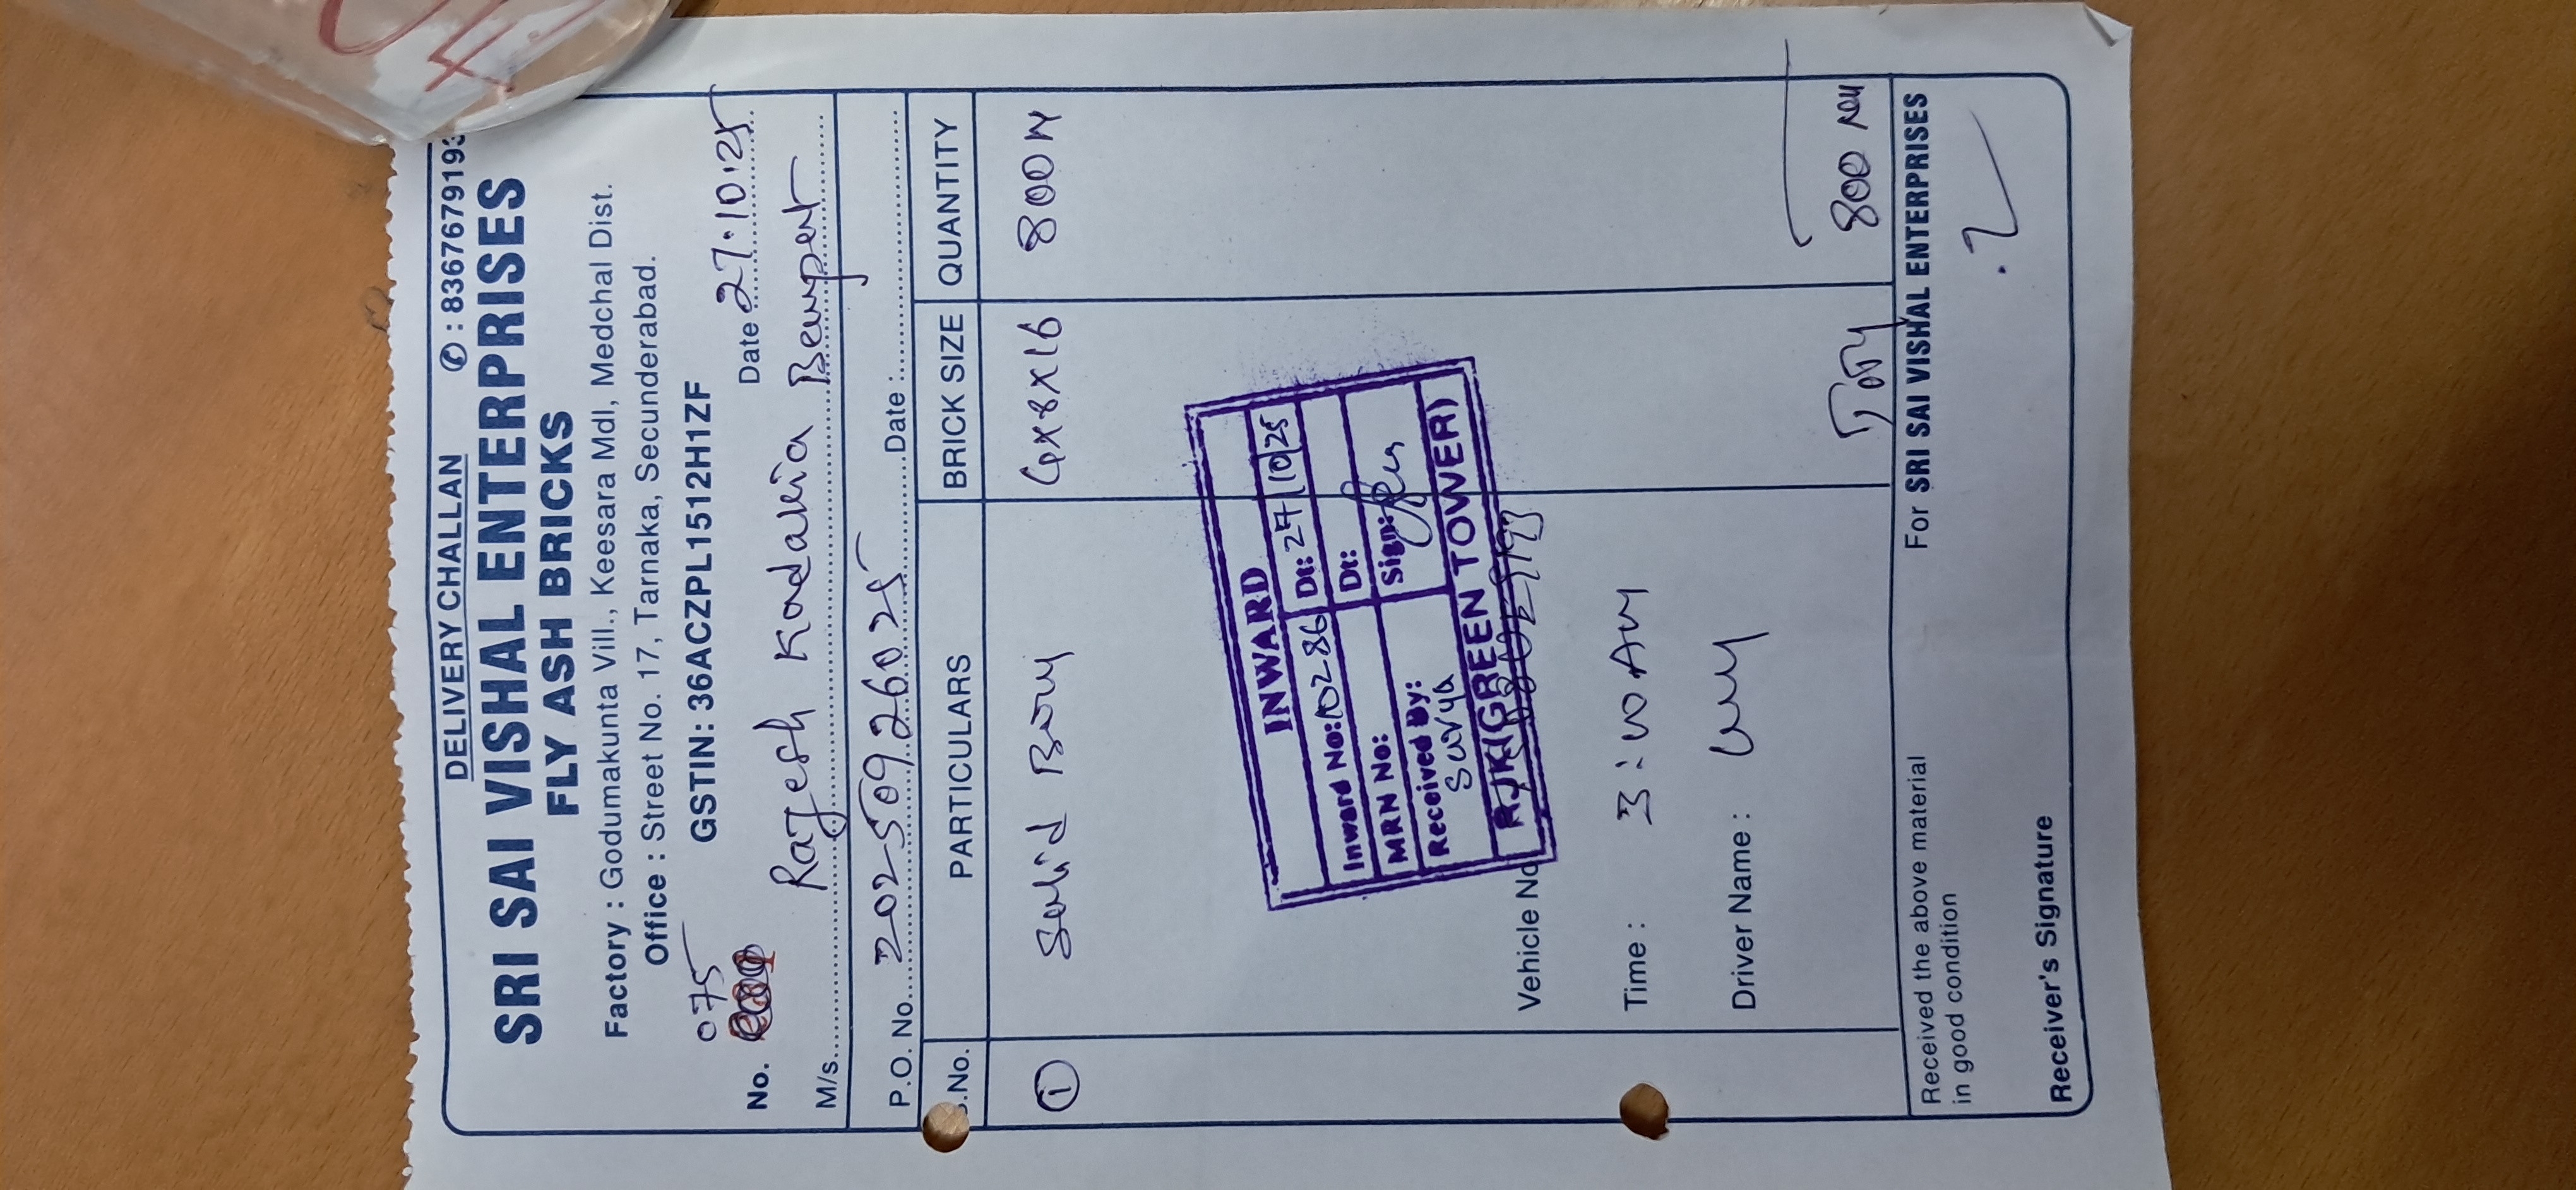 DELIVERY CHALLAN ✆ : 8367679193
SRI SAI VISHAL ENTERPRISES
FLY ASH BRICKS
Factory : Godumakunta Vill., Keesara Mdl, Medchal Dist.
Office : Street No. 17, Tarnaka, Secunderabad.
GSTIN: 36ACZPL1512H1ZF
075
No. Date 27.10.25
M/s. Rajesh Kadakia
P.O. No. 20250926025 Date :
S.No. PARTICULARS BRICK SIZE QUANTITY
1 Solid 4x8x16 800 N
INWARD
Inward No: 10286 Dt: 27/10/25
MRN No: Dt:
Received By: Sign:
Surya
RJK(GREEN TOWER)
Vehicle No
Time : 3:10 AM
Driver Name :
800
Received the above material
in good condition
For SRI SAI VISHAL ENTERPRISES
Receiver's Signature